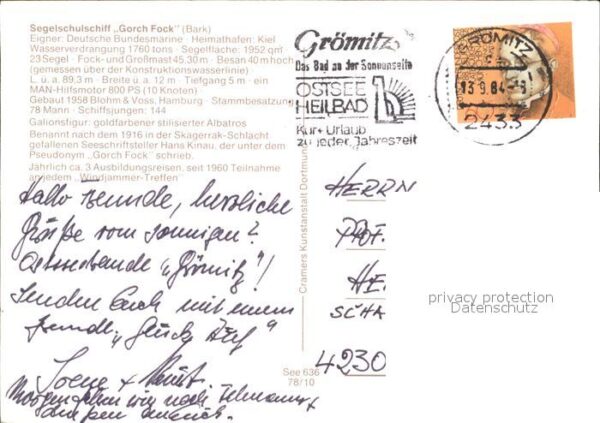 Segelschulschiff „Gorch Fock" (Bark)
Eigner: Deutsche Bundesmarine · Heimathafen: Kiel
Wasserverdrängung 1760 tons · Segelfläche: 1952 qm
23 Segel · Fock- und Großmast 45,30 m · Besan 40 m hoch
(gemessen über der Konstruktionswasserlinie)
L. ü. A. 89,3 m · Breite ü. A. 12 m · Tiefgang 5 m · ein
MAN-Hilfsmotor 800 PS (10 Knoten)
Gebaut 1958 Blohm & Voss, Hamburg · Stammbesatzung
78 Mann · Schiffsjungen: 144
Galionsfigur: goldfarbener stilisierter Albatros
Benannt nach dem 1916 in der Skagerrak-Schlacht
gefallenen Seeschriftsteller Hans Kinau, der unter dem
Pseudonym „Gorch Fock" schrieb.
Jährlich ca. 3 Ausbildungsreisen, seit 1960 Teilnahme
an jedem „Windjammer-Treffen"
Hallo Freunde, herzliche
Grüße vom sonnigen
Ostseebande „Grömitz"!
Senden Euch mit einem
„Glück Auf"
Morgen
Cramers Kunstanstalt Dortmund
See 636
78/10
Grömitz
Das Bad an der Sonnenseite
OSTSEE
HEILBAD
Kur + Urlaub
zu jeder Jahreszeit
GRÖMITZ
13.9.84
2433
HERRN
PROF.
HE
SCHA
4230
privacy protection
Datenschutz